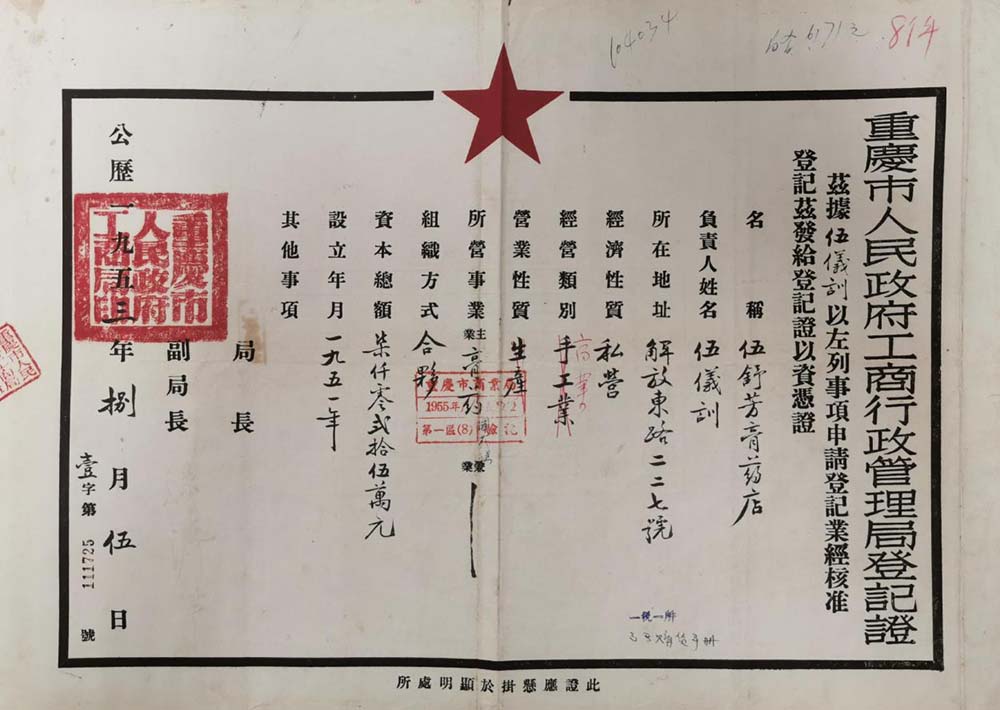 104034
814
重慶市人民政府工商行政管理局登記證
茲據伍儀訓以左列事項申請登記業經核准
登記茲發給登記證以資憑證
名稱 伍舒芳膏药店
負責人姓名 伍儀訓
所在地址 解放東路二二七號
經濟性質 私營
經營類別 手工業
商業
營業性質 生產
所營事業 主業 膏药 兼業
組織方式 合夥
資本總額 柒仟零弍拾伍萬元
設立年月 一九五一年
其他事項
局長
副局長
公歷一九五三年捌月伍日
壹字第111725號
重慶市人民政府工商局印
重慶市商業局
1955年
第一區(8)驗記
一稅一所
此證應懸掛於顯明處所